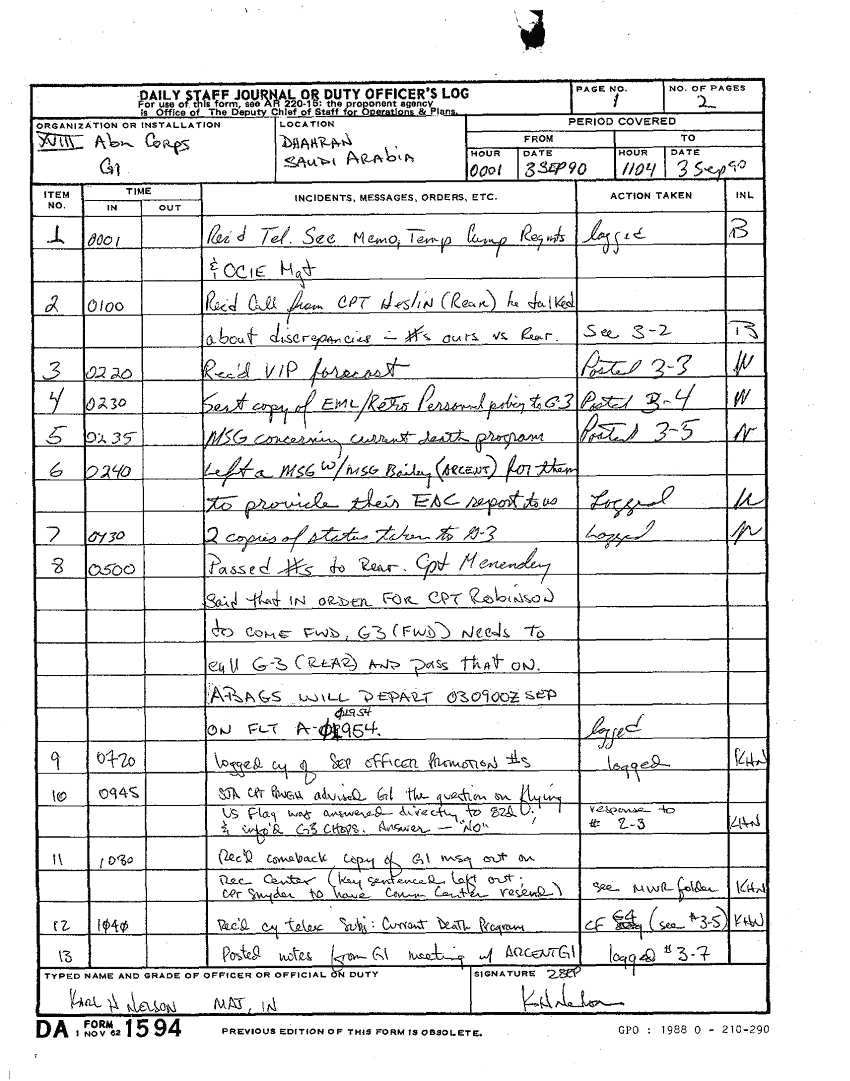 DAILY STAFF JOURNAL OR DUTY OFFICER'S LOG
For use of this form, see AR 220-15; the proponent agency
is Office of The Deputy Chief of Staff for Operations & Plans.
PAGE NO.
1
NO. OF PAGES
2
ORGANIZATION OR INSTALLATION
XVIII Abn Corps
G1
LOCATION
DHAHRAN
SAUDI ARABIA
PERIOD COVERED
FROM
TO
HOUR
0001
DATE
3 SEP 90
HOUR
1104
DATE
3 Sep 90
ITEM NO.
TIME
IN
OUT
INCIDENTS, MESSAGES, ORDERS, ETC.
ACTION TAKEN
INL
1 0001 Rec'd Tel. See Memo, Temp Rqmts logged B
& OCIE Mgt
2 0100 Rec'd Call from CPT Heslin (Rear) he talked
about discrepancies - #s ours vs Rear. See 3-2 B
3 0220 Rec'd VIP forecast Posted 3-3
4 0230 Sent copy of EML/Retro Personnel policy to G-3 Posted 3-4
5 0235 MSG concerning current death program Posted 3-5
6 0240 Left a MSG w/MSG Bailey (ARCENT) for them
to provide their EAC report to us Logged
7 0430 2 copies of status taken to G-3 Logged
8 0500 Passed #s to Rear. Cpt Menendez
Said that IN ORDER FOR CPT ROBINSON
to COME FWD, G3 (FWD) NEEDS TO
call G-3 (REAR) AND pass that ON.
ABAGS WILL DEPART 030900Z SEP
01954
ON FLT A-01954. logged
9 0720 logged cy of SEP OFFICER PROMOTION #s logged KHN
10 0945 SJA CPT advised G1 the question on flying
US Flag was answered directly to 82d
& info'd G3 CHOPS. Answer - "NO" response to # 2-3 KHN
11 1030 Rec'd comeback copy of G1 msg out on
Rec Center (key sentenced left out;
CPT Snyder to have Comm Center resend) see MWR folder KHN
12 1040 Rec'd cy telex Subj: Current Death Program CF G4 (see #3-5) KHN
13 Posted notes from G1 meeting w/ ARCENT G1 logged #3-7
TYPED NAME AND GRADE OF OFFICER OR OFFICIAL ON DUTY
Karl H Nelson MAJ, IN
SIGNATURE 2 SEP
K H Nelson
DA FORM 1594
1 NOV 62
PREVIOUS EDITION OF THIS FORM IS OBSOLETE.
GPO : 1988 O - 210-290